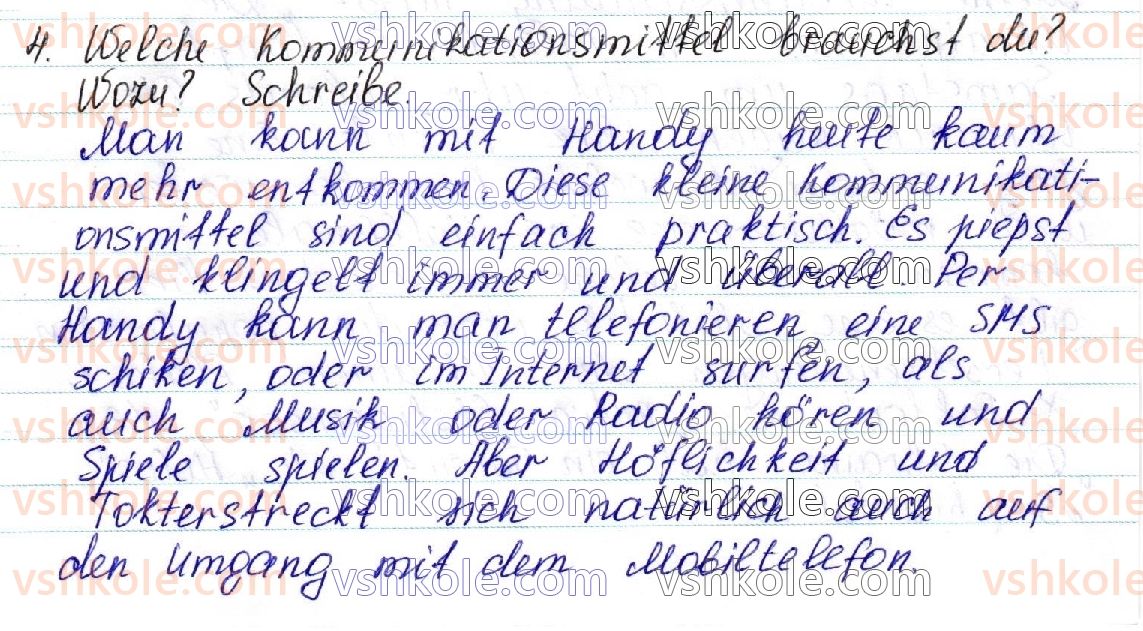 4. Welche Kommunikationsmittel brauchst du?
Wozu? Schreibe.
Man kann mit Handy heute kaum
mehr entkommen. Diese kleine Kommunikati-
onsmittel sind einfach praktisch. Es piepst
und klingelt immer und überall. Per
Handy kann man telefonieren, eine SMS
schiken, oder im Internet surfen, als
auch Musik oder Radio hören und
Spiele spielen. Aber Höflichkeit und
Tokterstreckt sich natürlich auch auf
den Umgang mit dem Mobiltelefon.
vshkole.com